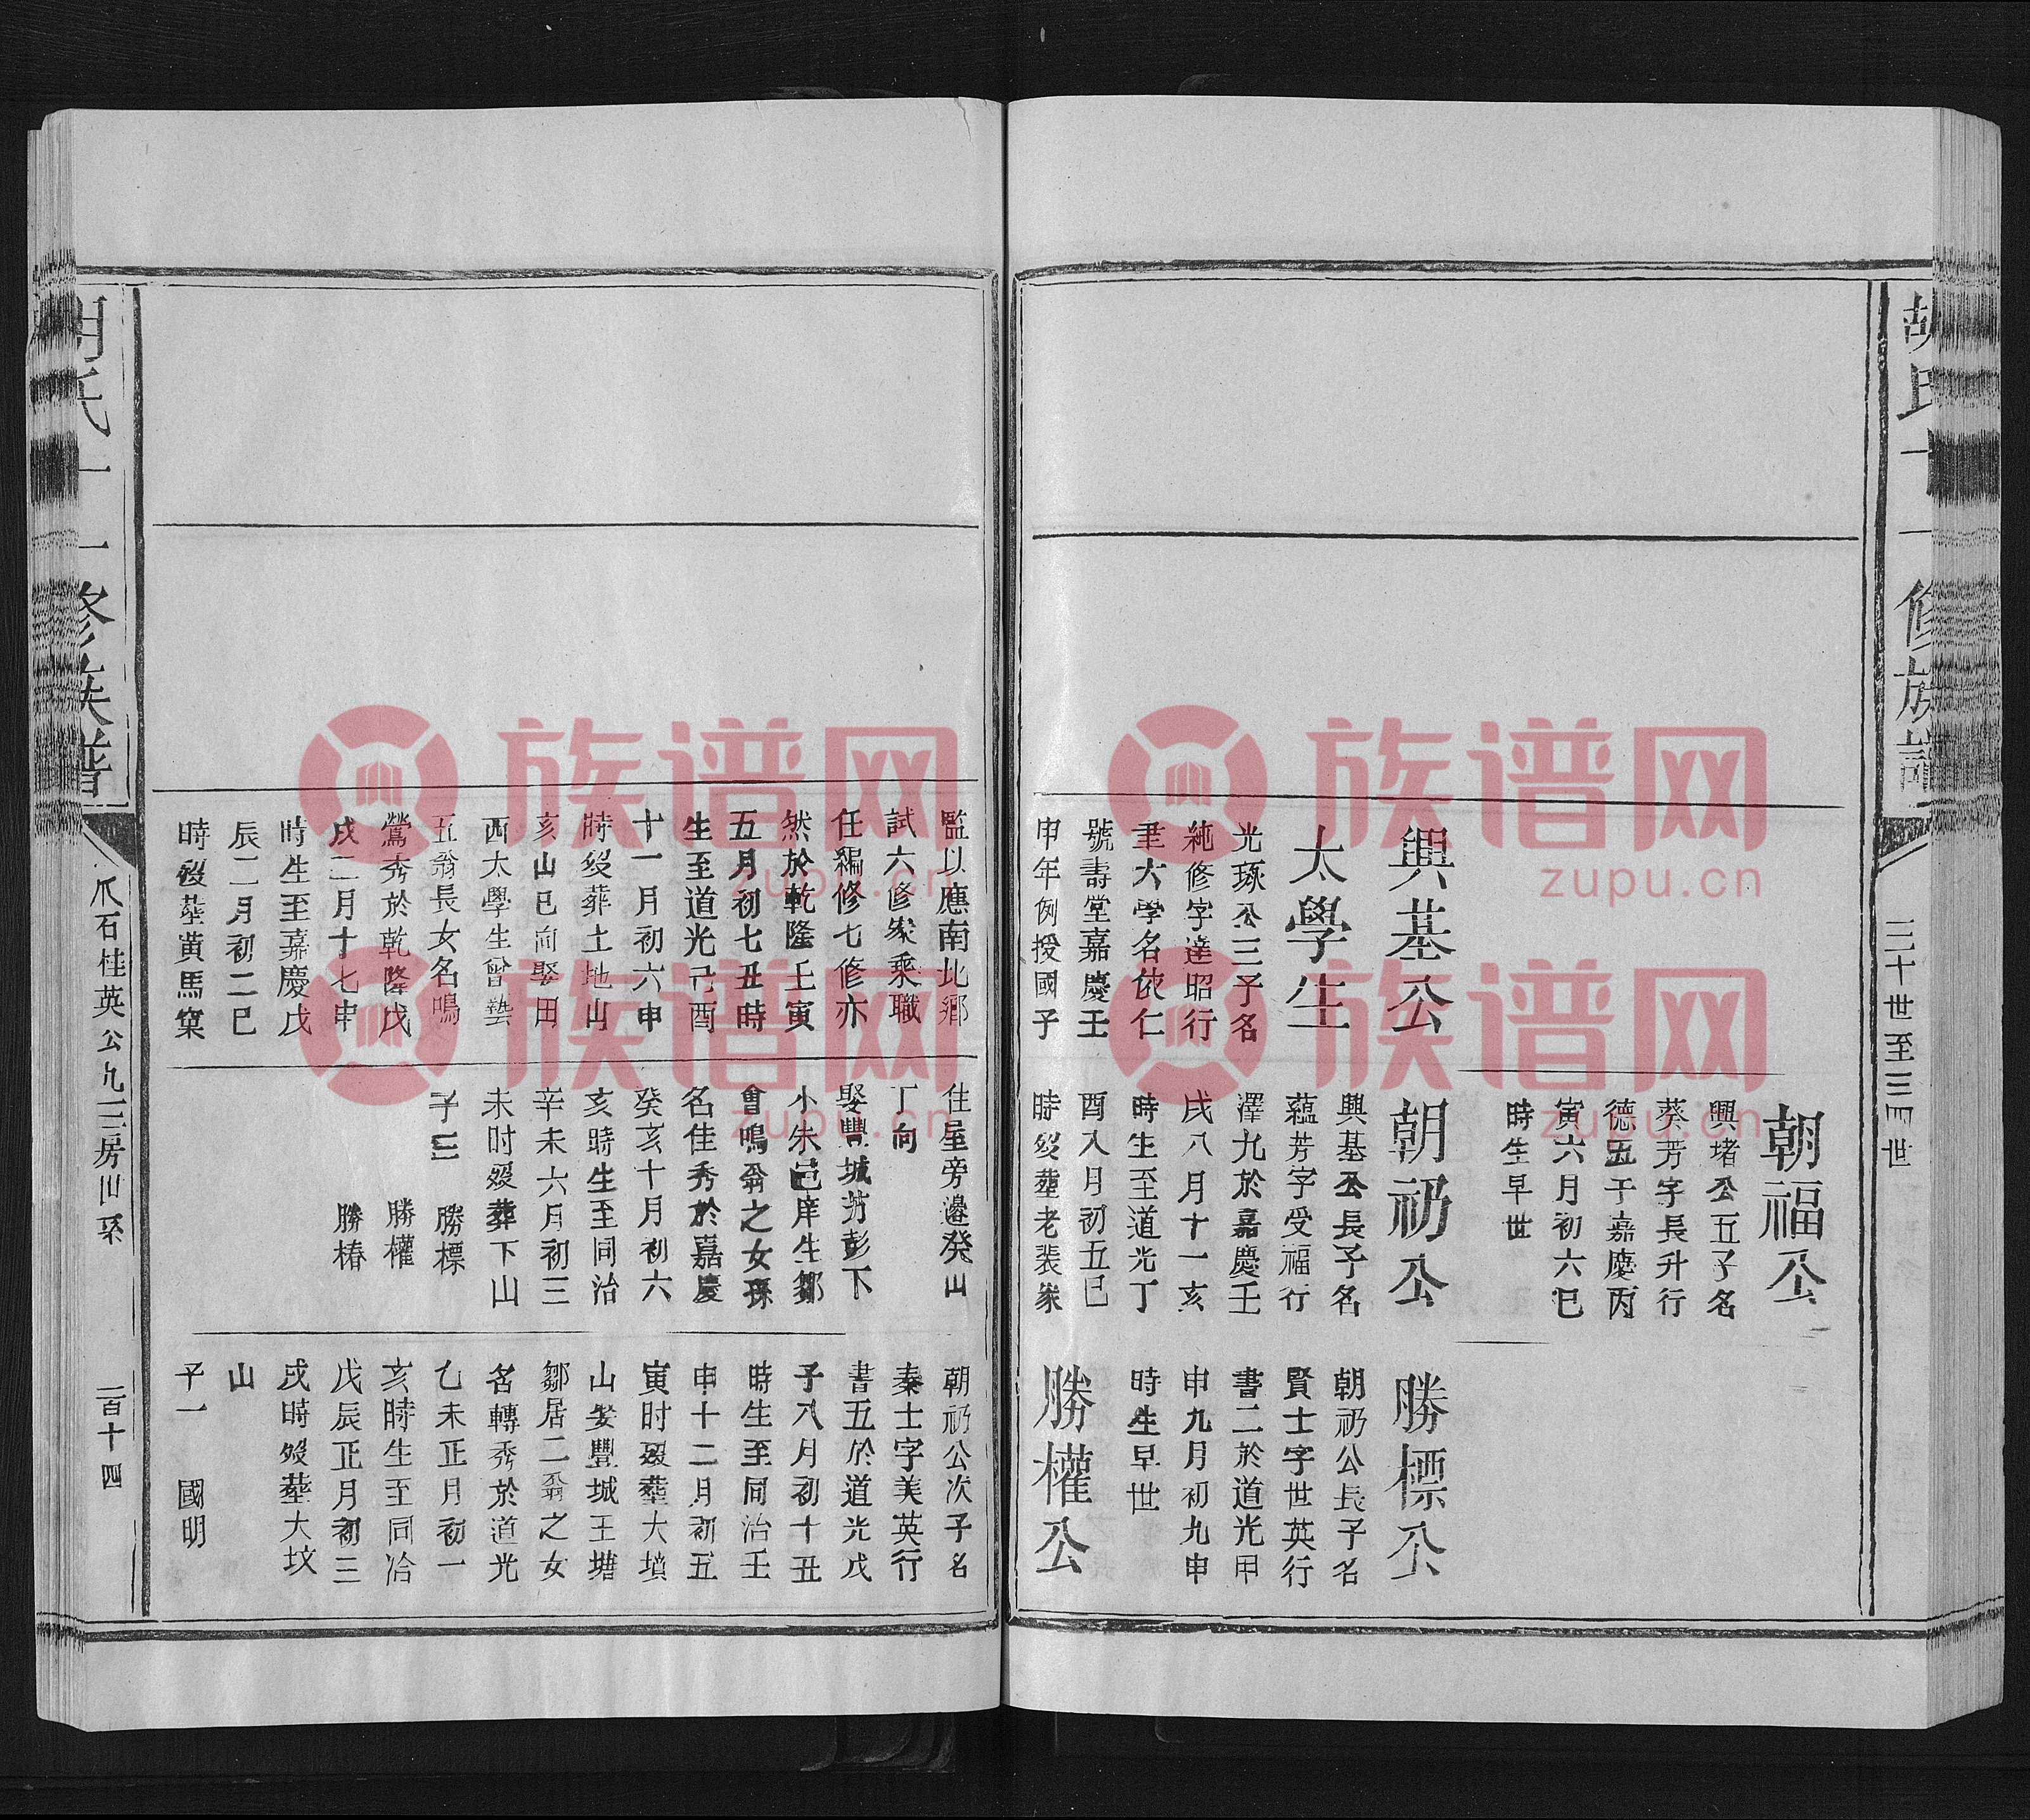 胡氏十一修族譜
三十世至三四世
朝福公
興堵公五子名
葵芳字長升行
德五于嘉慶丙
寅六月初六巳
時生早世
興基公
太學生
光琢公三子名
純修字達昭行
聿大學名依仁
號壽堂嘉慶壬
申年例授國子
朝礽公
興基公長子名
蘊芳字受福行
澤九於嘉慶壬
戌八月十一亥
時生至道光丁
酉八月初五巳
時歿塟老裴家
勝標公
朝礽公長子名
賢士字世英行
書二於道光甲
申九月初九申
時生早世
勝權公
監以應南北鄉
試六修家乘職
任編修七修亦
然於乾隆壬寅
五月初七丑時
生至道光己酉
十一月初六申
時歿葬土地山
亥山巳向娶田
西太學生曾藝
五翁長女名鳴
鶯秀於乾隆戊
戌二月十七申
時生至嘉慶戊
辰二月初二巳
時歿塟黄馬窠
住屋旁邊癸山
丁向
娶豐城艿彭下
小朱邑庠生鄒
會鳴翁之女孫
名佳秀於嘉慶
癸亥十月初六
亥時生至同治
辛未六月初三
未时歿葬下山
子三 勝標
勝權
勝椿
朝礽公次子名
秦士字美英行
書五於道光戊
子八月初十丑
時生至同治壬
申十二月初五
寅时歿塟大墳
山娶豐城王塘
鄒居二翁之女
名轉秀於道光
乙未正月初一
亥時生至同治
戊辰正月初三
戌時歿塟大坟
山
子一 國明
胡氏十一修族譜
爪石桂英公九三房世系
一百十四
族谱网
zupu.cn
族谱网
zupu.cn
族谱网
zupu.cn
族谱网
zupu.cn